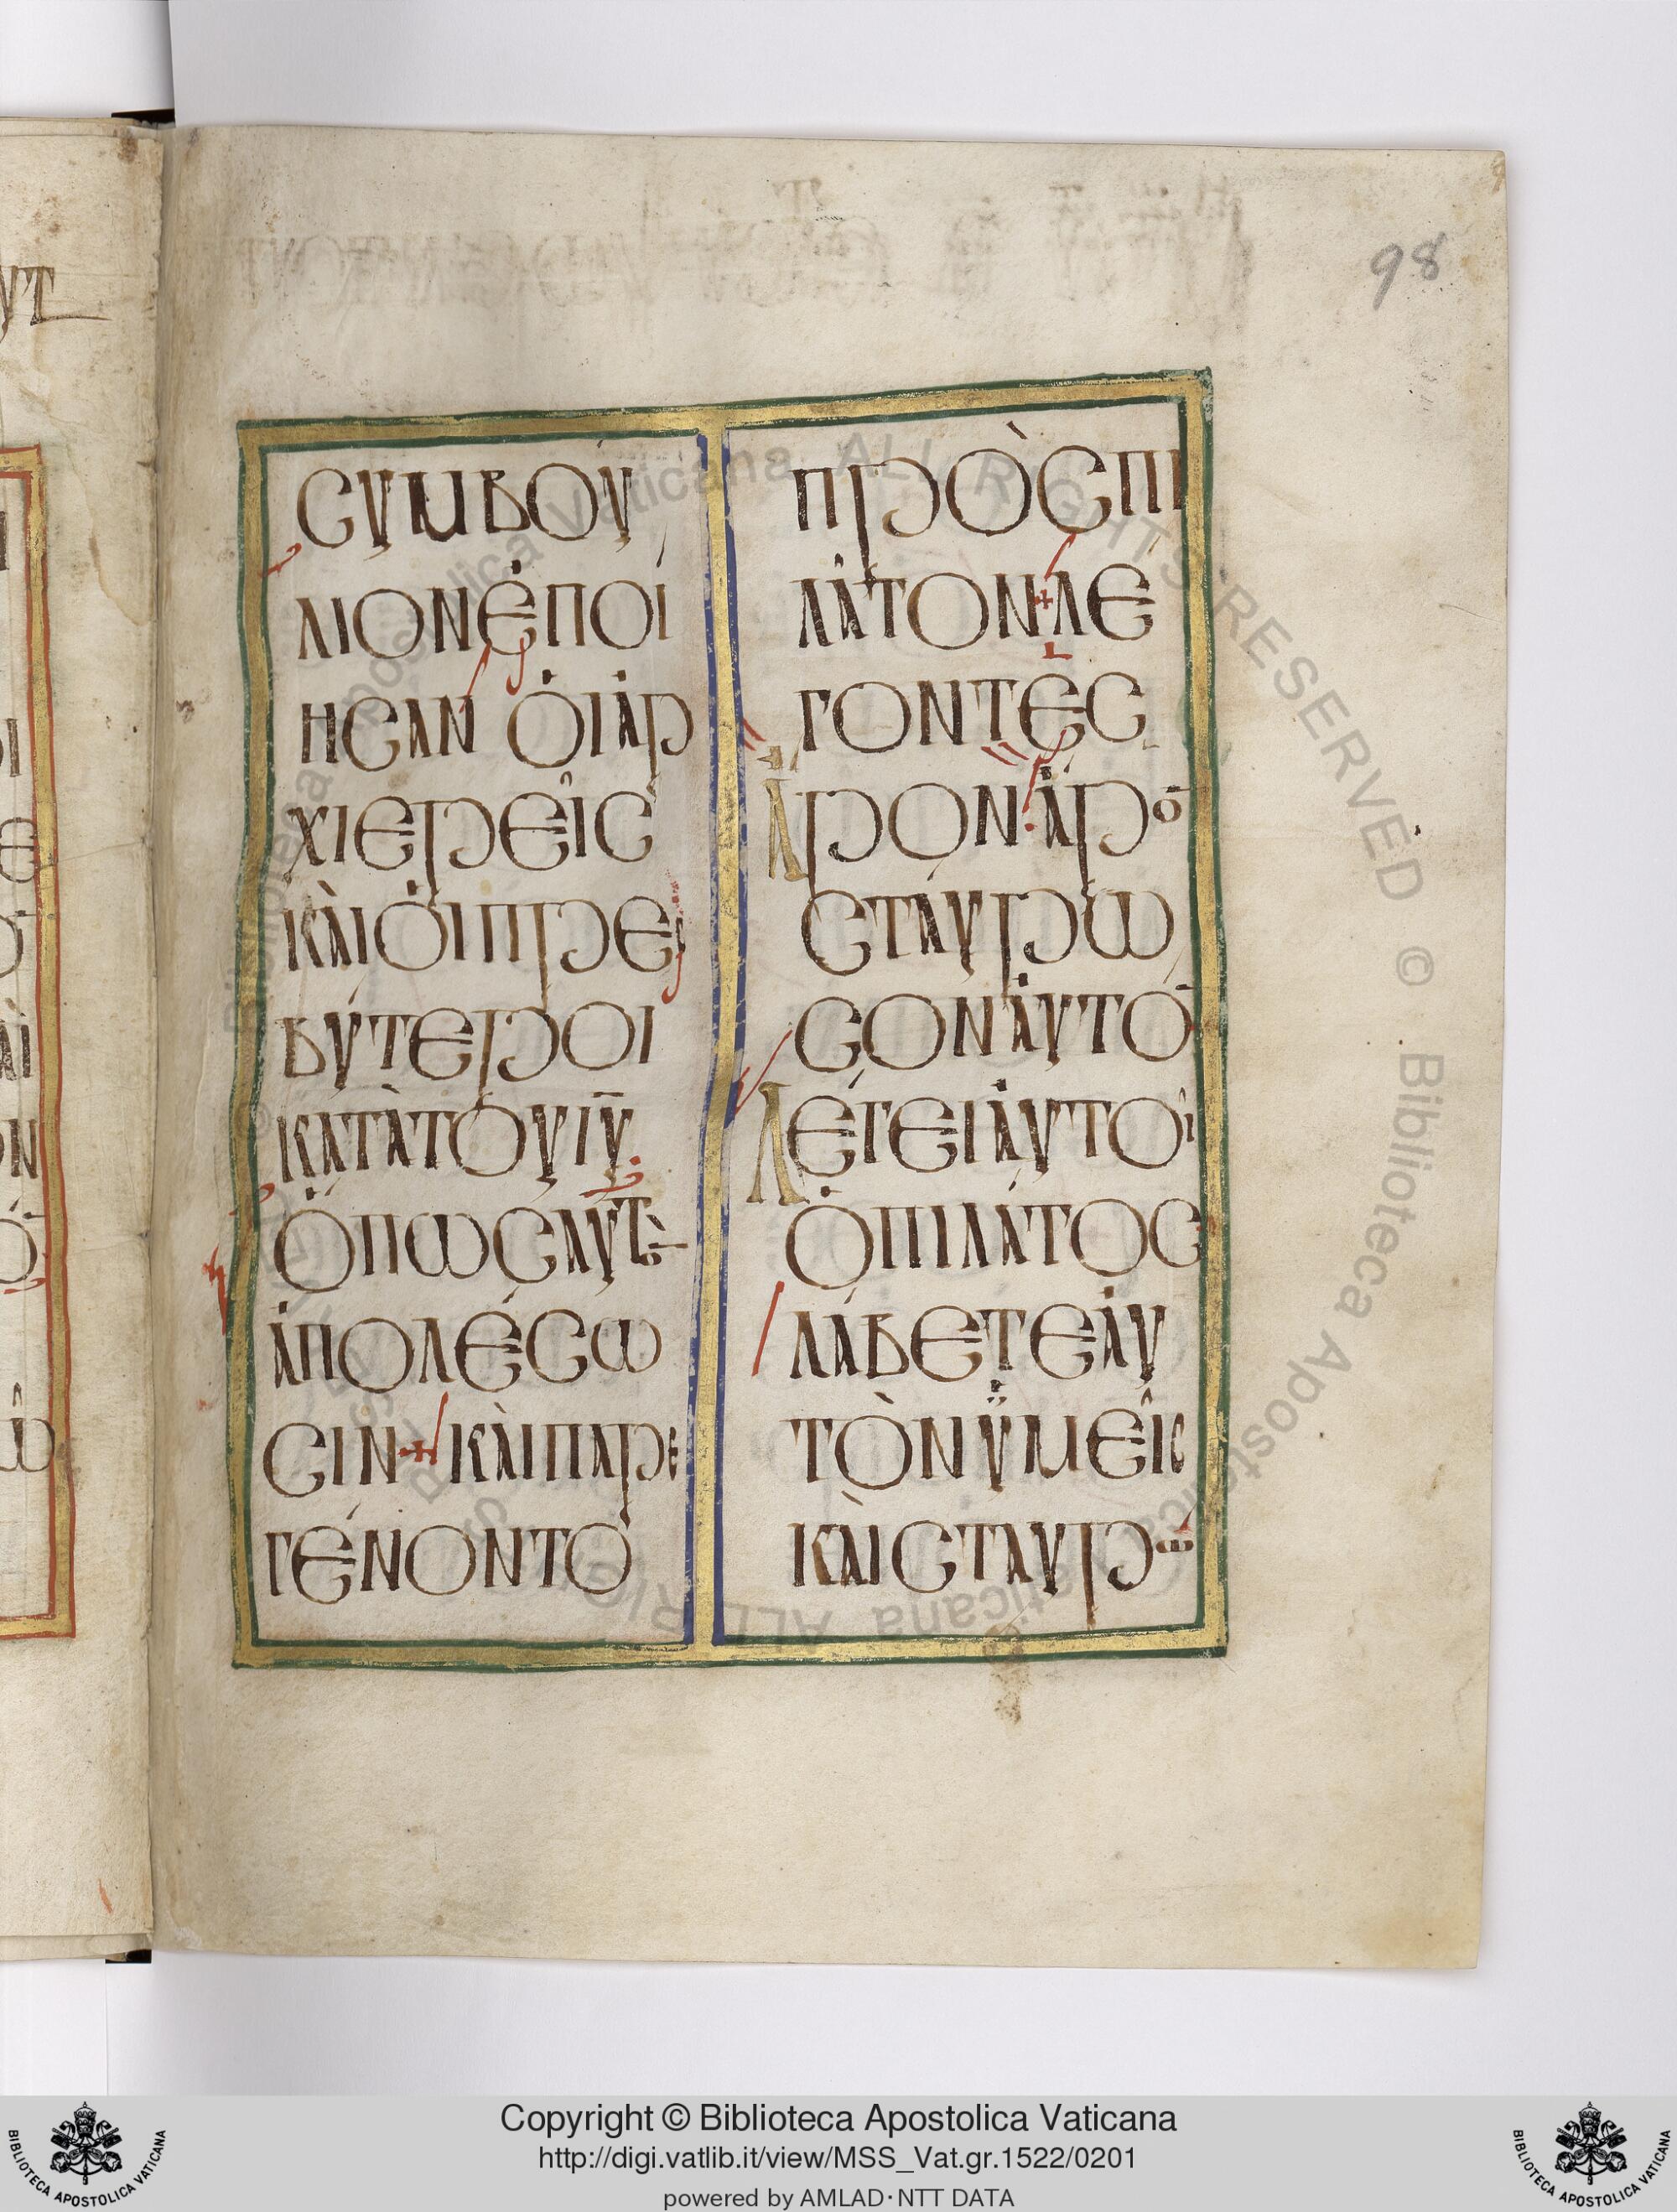 98
ϹΥΜΒΟΥ
ΛΙΟΝἘΠΟΙ
ΗϹΑΝ ὉΙἈΡ
ΧΙΕΡΕΙ͂Ϲ
ΚΑῚὉΙΠΡΕϹ
ΒΎΤΕΡΟΙ
ΚΑΤᾺΤΟΥΙΥ̅·
ὍΠΩϹΑΥΤῸ
ἈΠΟΛΈϹΩ
ϹΙΝ+ΚΑῚΠΑΡΕ
ΓΈΝΟΝΤΟ
ΠΡῸϹΠΙ
ΛΆΤΟΝ+ΛΕ
ΓΟΝΤΕϹ
ἎΡΟΝ·ἎΡΟ̅
ϹΤΑΎΡΩ
ϹΟΝἈΥΤΟ̅
ΛΈΓΕΙἈΥΤΟΙ͂
ὉΠΙΛΆΤΟϹ
ΛΆΒΕΤΕἈΥ
ΤῸΝΫΜΕΙ͂Ϲ
ΚΑῚϹΤΑΥΡΩ
Copyright © Biblioteca Apostolica Vaticana
http://digi.vatlib.it/view/MSS_Vat.gr.1522/0201
powered by AMLAD·NTT DATA
BIBLIOTECA APOSTOLICA VATICANA
BIBLIOTECA APOSTOLICA VATICANA
Biblioteca Apostolica Vaticana ALL RIGHTS RESERVED ©